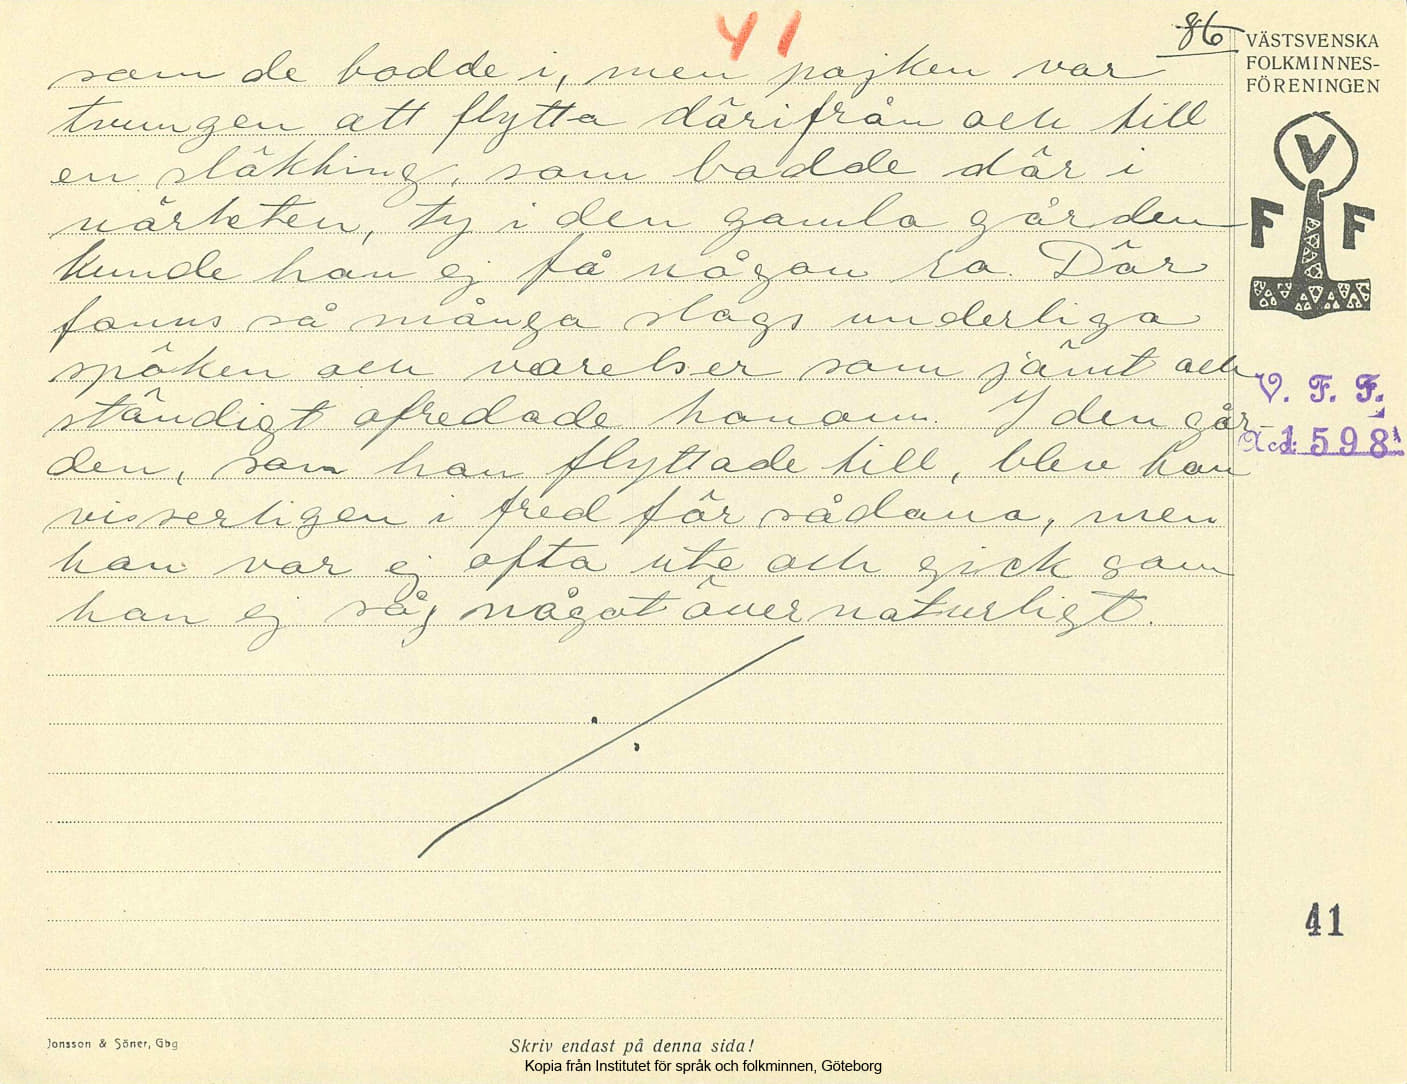 41
86
som de bodde i, men pojken var
tvungen att flytta därifrån och till
en släkting, som bodde där i
närheten, ty i den gamla gården
kunde han ej få någon ro. Där
fanns så många slags underliga
spöken och varelser som jämt och
ständigt ofredade honom. I den går-
den, som han flyttade till, blev han
visserligen i fred för sådana, men
han var ej ofta ute och gick som
han ej såg något övernaturligt.
VÄSTSVENSKA
FOLKMINNES-
FÖRENINGEN
V
F F
V. F. F.
Acc: 1598
41
Jonsson & Söner, Gbg
Skriv endast på denna sida!
Kopia från Institutet för språk och folkminnen, Göteborg